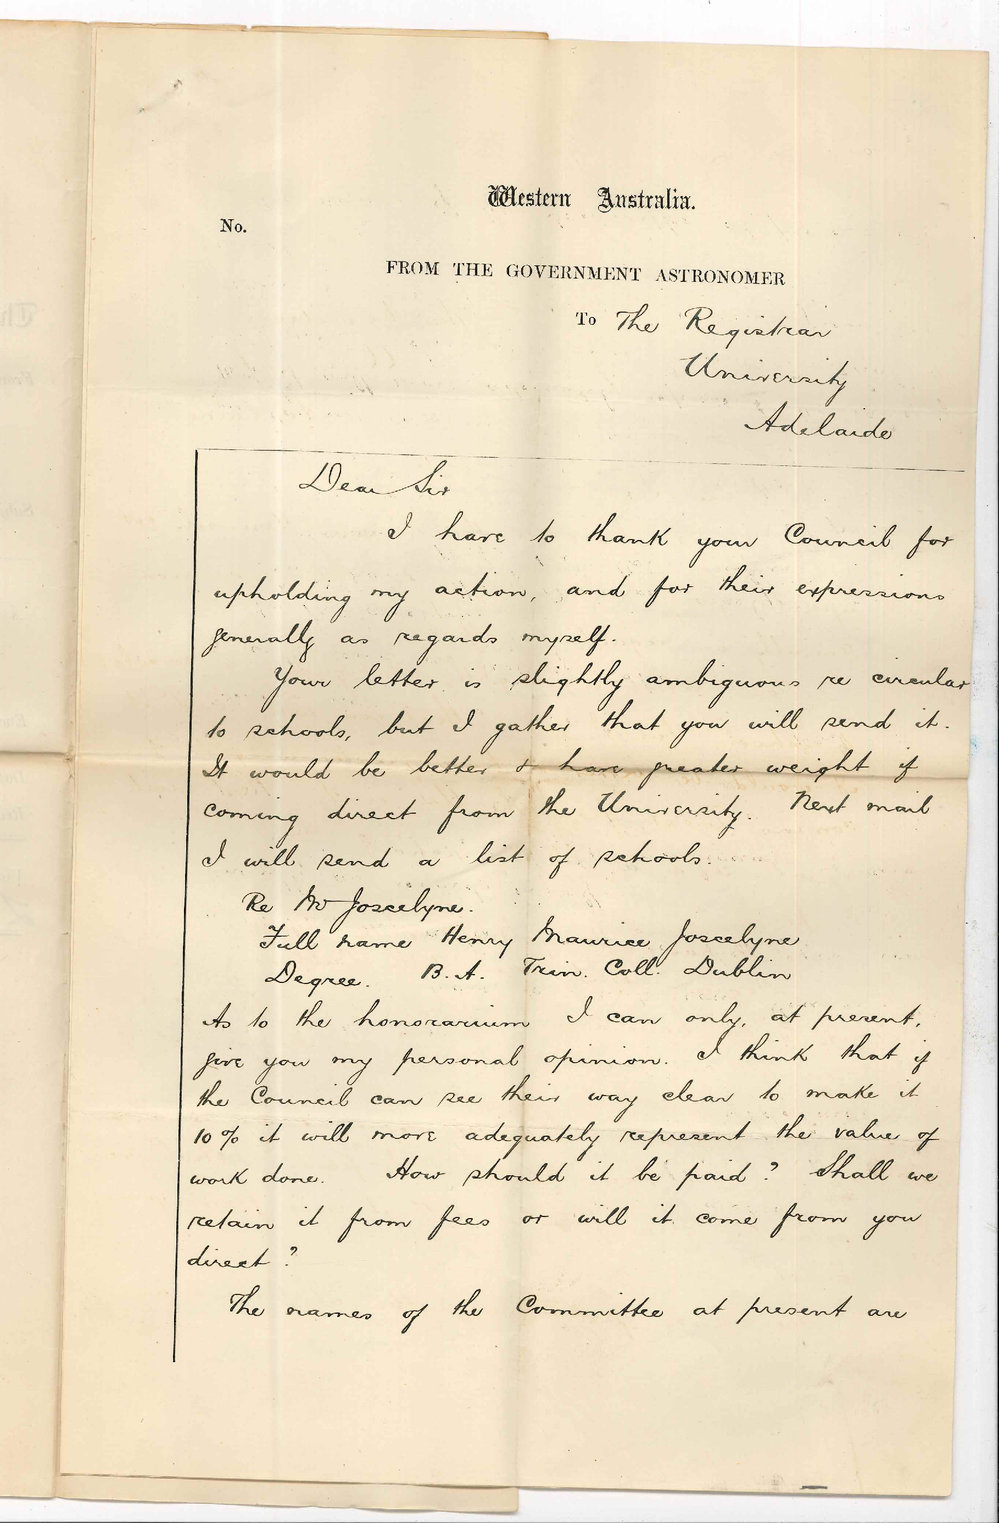 Western Australia.
No.
FROM THE GOVERNMENT ASTRONOMER
To The Registrar
University
Adelaide
Dear Sir
I have to thank your Council for
upholding my action, and for their expressions
generally as regards myself.
Your letter is slightly ambiguous re circular
to schools, but I gather that you will send it.
It would be better & have greater weight if
coming direct from the University. Next mail
I will send a list of schools.
Re Mr Joscelyne.
Full name Henry Maurice Joscelyne
Degree. B.A. Trin. Coll. Dublin
As to the honorarium I can only, at present,
give you my personal opinion. I think that if
the Council can see their way clear to make it
10% it will more adequately represent the value of
work done. How should it be paid? Shall we
retain it from fees or will it come from you
direct?
The names of the Committee at present are